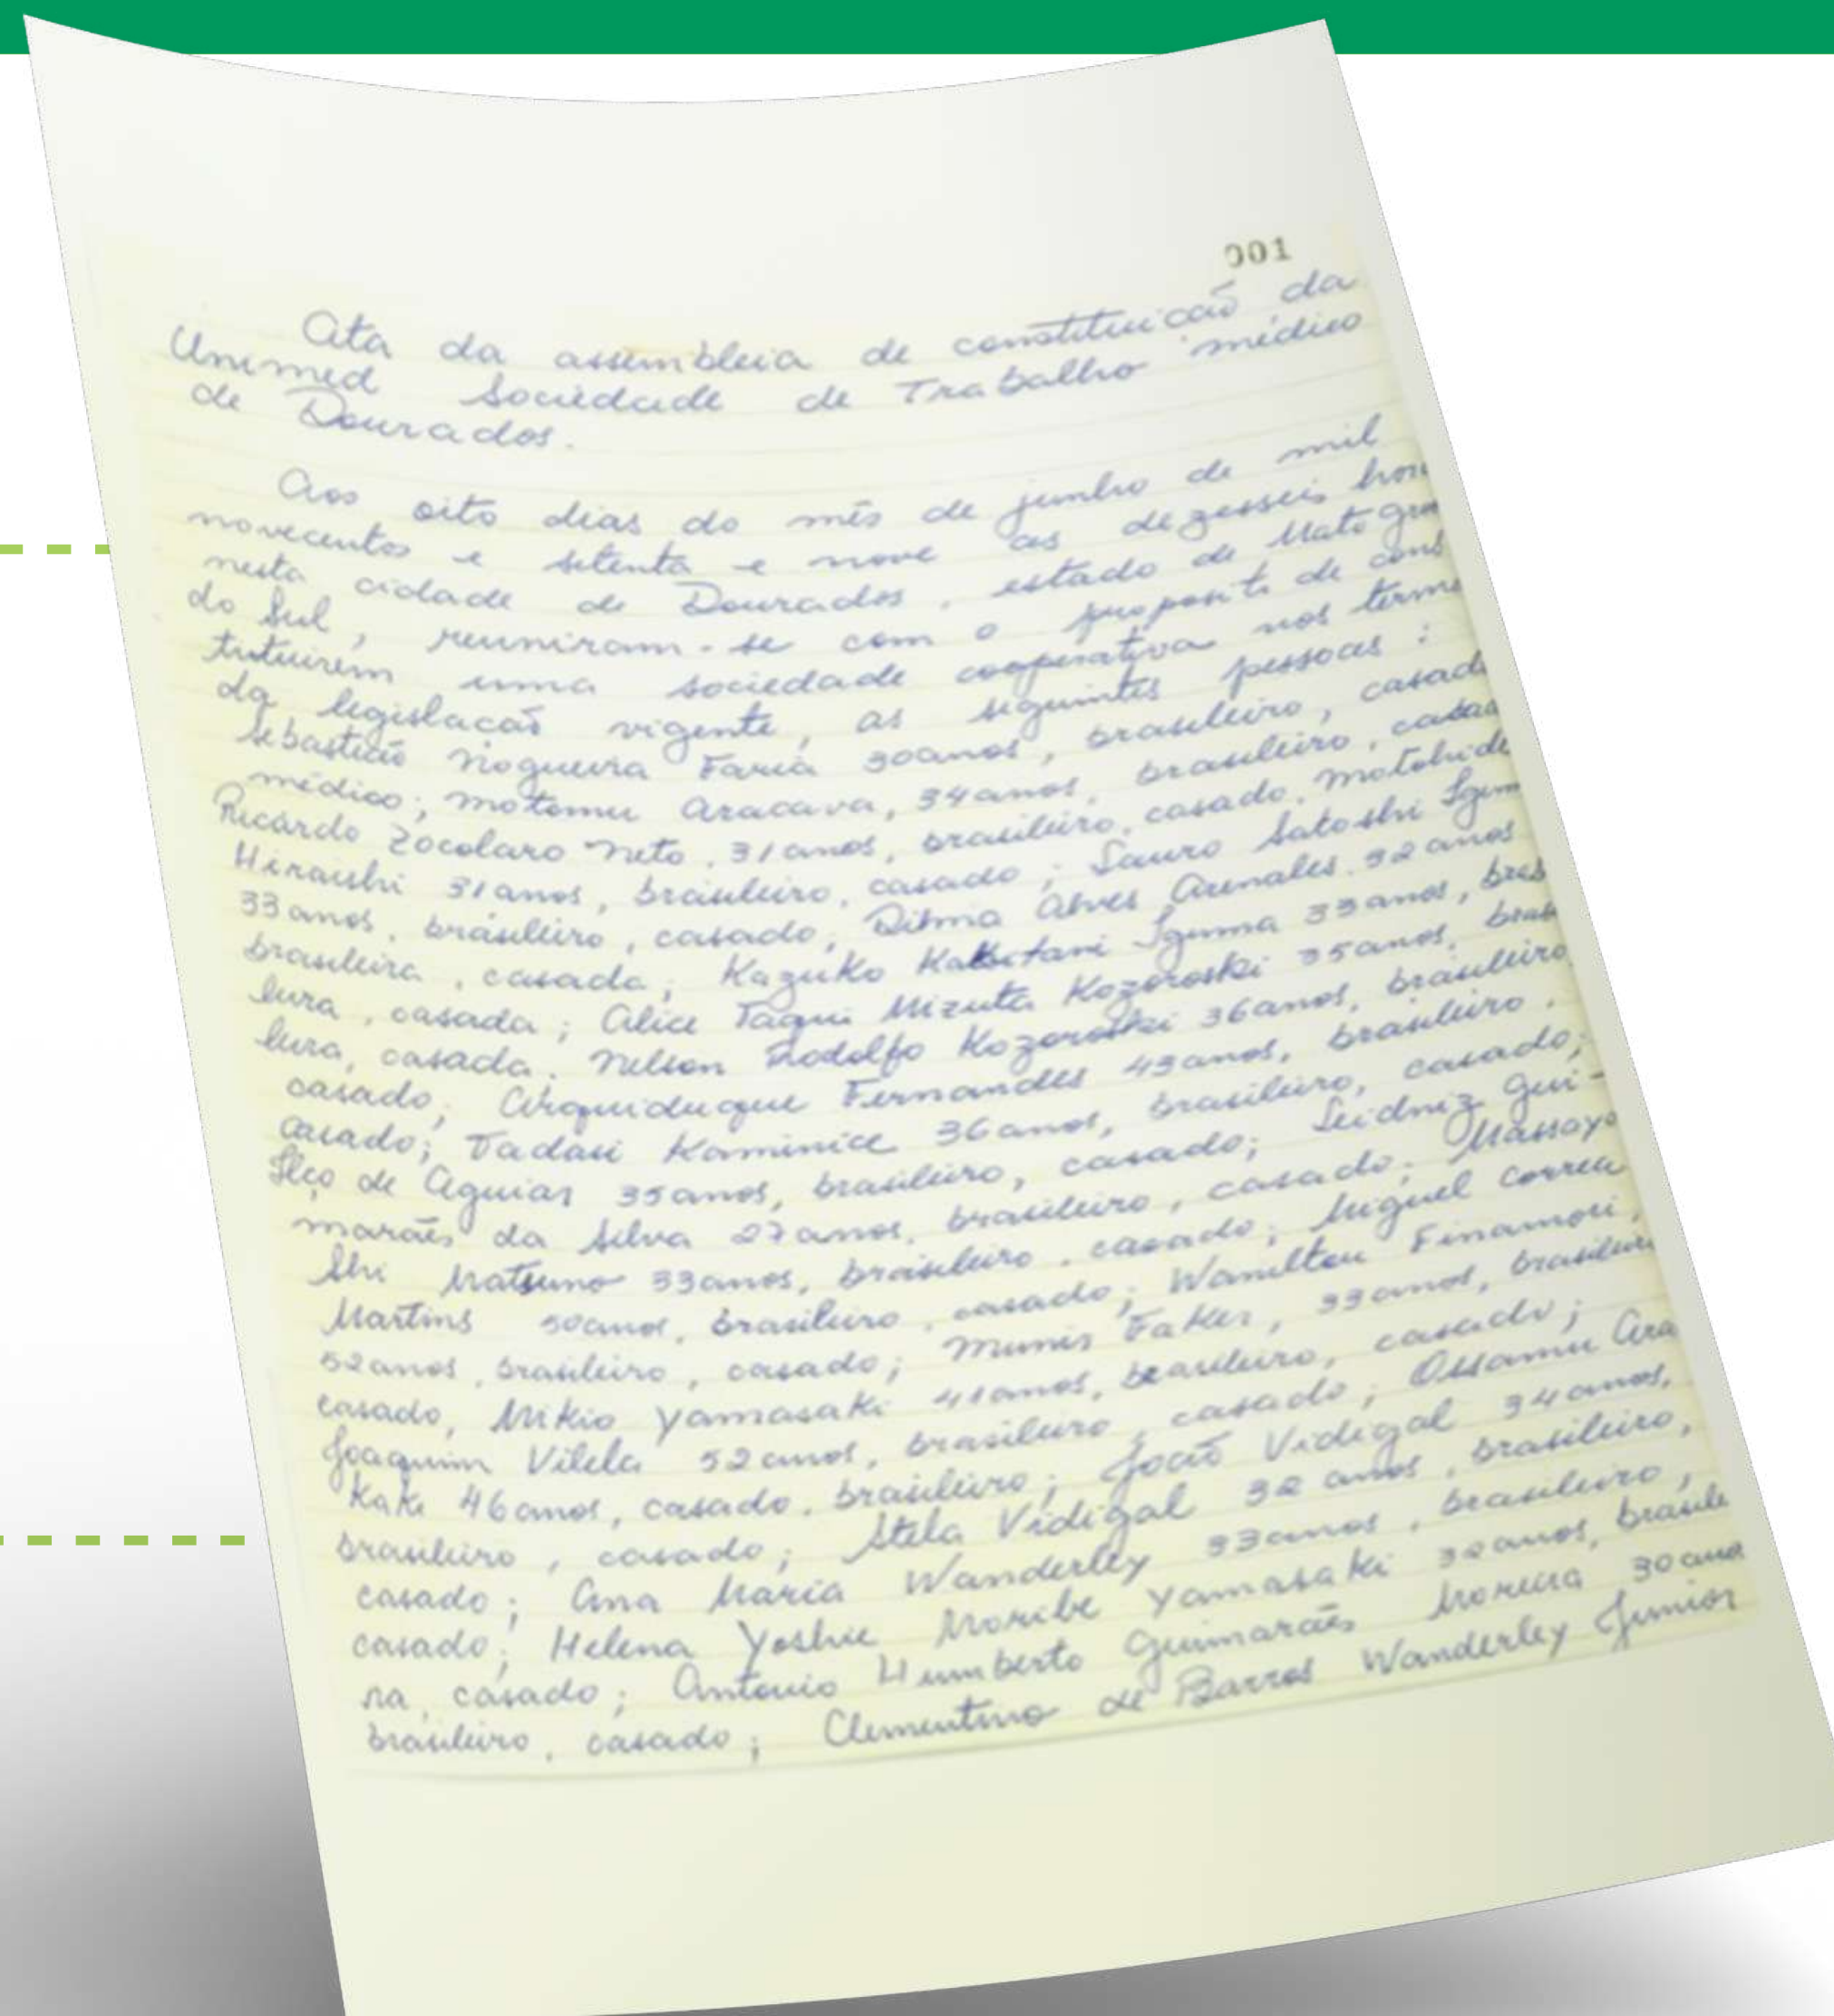 001
Ata da assembleia de constituicaõ da
Unimed Sociedade de Trabalho médico
de Dourados.
Aos oito dias do mês de junho de mil
novecentos e setenta e nove as dezesseis hora
nesta cidade de Dourados, estado de Mato Gros
do Sul, reuniram-se com o proposito de cons
tituirem uma sociedade cooperativa nos termo
da legislacaõ vigente, as seguintes pessoas:
Sebastiaõ Nogueira Faria 30 anos, brasileiro, casado
médico; Motomu Aracava, 34 anos, brasileiro, casad
Ricardo Zocolaro Neto, 31 anos, brasileiro, casado, Motohide
Hiraishi 31 anos, brasileiro, casado; Lauro Satoshi Igum
33 anos, brasileiro, casado, Dilma Alves Arenales, 32 anos
brasileira, casada; Kazuko Igumma 33 anos, bras
leira, casada; Alice Mizuta Kozoroski 35 anos, brasi
leira, casada. Nelson Rodolfo Kozoroski 36 anos, brasileiro,
casado; Arquiduque Fernandes 43 anos, brasileiro.
casado; Tadasi Kaminice 36 anos, brasileiro, casado;
de Aguiar 35 anos, brasileiro, casado; Gui-
marães da Silva 27 anos, brasileiro, casado; Massayo
Shi Matsuno 33 anos, brasileiro, casado; Miguel Correa
Martins 50 anos, brasileiro, casado; Wamilton Finamori,
52 anos, brasileiro, casado; Munir Faker, 33 anos, brasileiro
casado, Mikio Yamasaki 41 anos, brasileiro, casado;
Joaquim Vilela 52 anos, brasileiro, casado; Ossamu Ara
Kaki 46 anos, casado, brasileiro; Joaõ Vidigal 34 anos,
brasileiro, casado; Stela Vidigal 32 anos, brasileiro,
casado; Ana Maria Wanderley 33 anos, brasileiro,
casado; Helena Yoshie Moribe Yamasaki 32 anos, brasile
ra, casado; Antonio Humberto Guimarães Moreira 30 anos
brasileiro, casado; Clementino de Barros Wanderley Junior